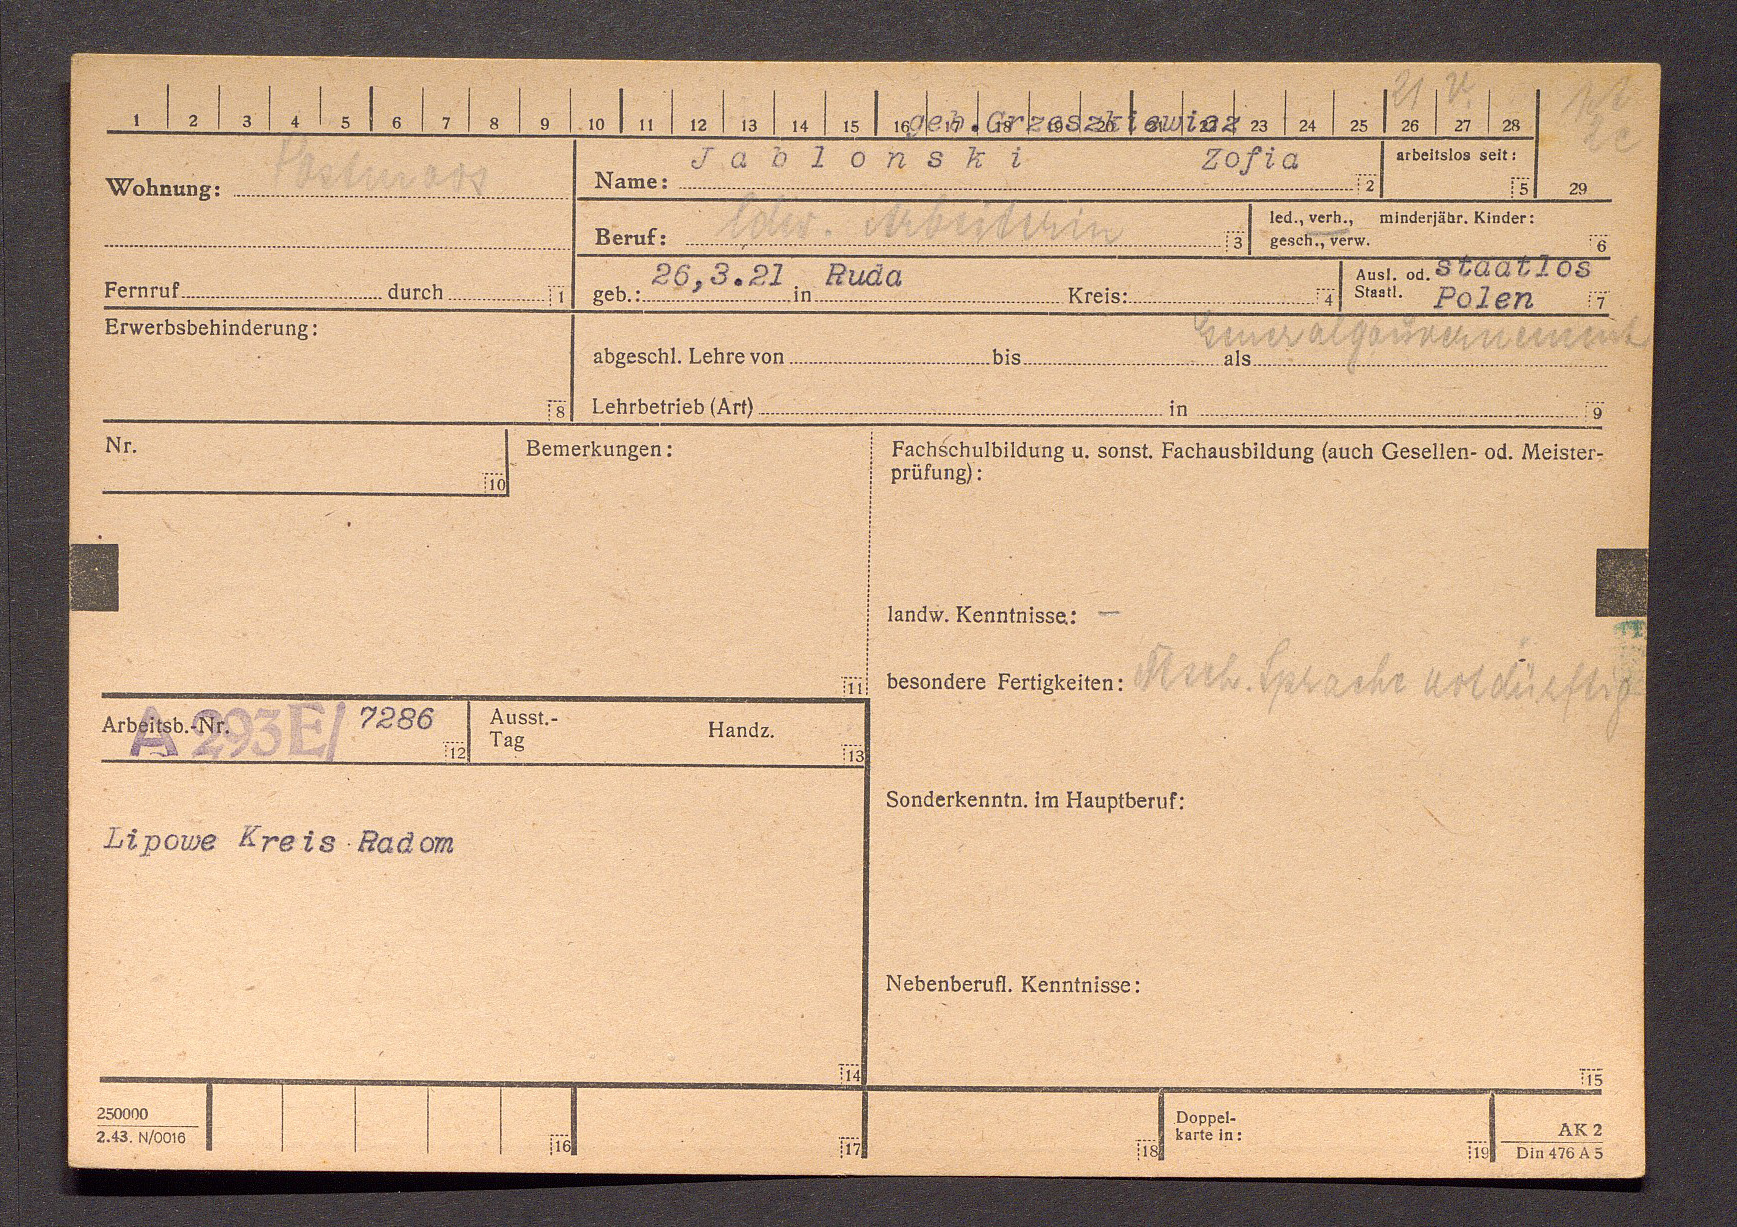 21 V.
1 2 3 4 5 6 7 8 9 10 11 12 13 14 15 16 17 18 19 20 21 22 23 24 25 26 27 28
geb. Grzeszkiewicz
Wohnung: Postmoos
Name: Jablonski Zofia 2
arbeitslos seit: 5
29
Beruf: ldw. Arbeiterin 3
led., verh., minderjähr. Kinder:
gesch., verw. 6
Fernruf durch 1
geb.: 26,3.21 in Ruda Kreis: 4
Ausl. od. staatlos
Staatl. Polen 7
Generalgouvernement
Erwerbsbehinderung: 8
abgeschl. Lehre von bis als
Lehrbetrieb (Art) in 9
Nr. 10
Bemerkungen: 11
Fachschulbildung u. sonst. Fachausbildung (auch Gesellen- od. Meister-
prüfung):
landw. Kenntnisse: —
besondere Fertigkeiten: Sprache notdürftig
Arbeitsb.-Nr. A 293E/ 7286 12
Ausst.-
Tag Handz. 13
Sonderkenntn. im Hauptberuf:
Lipowe Kreis Radom
Nebenberufl. Kenntnisse:
14
15
250000
2.43. N/0016
16
17
18
Doppel-
karte in: 19
AK 2
Din 476 A 5